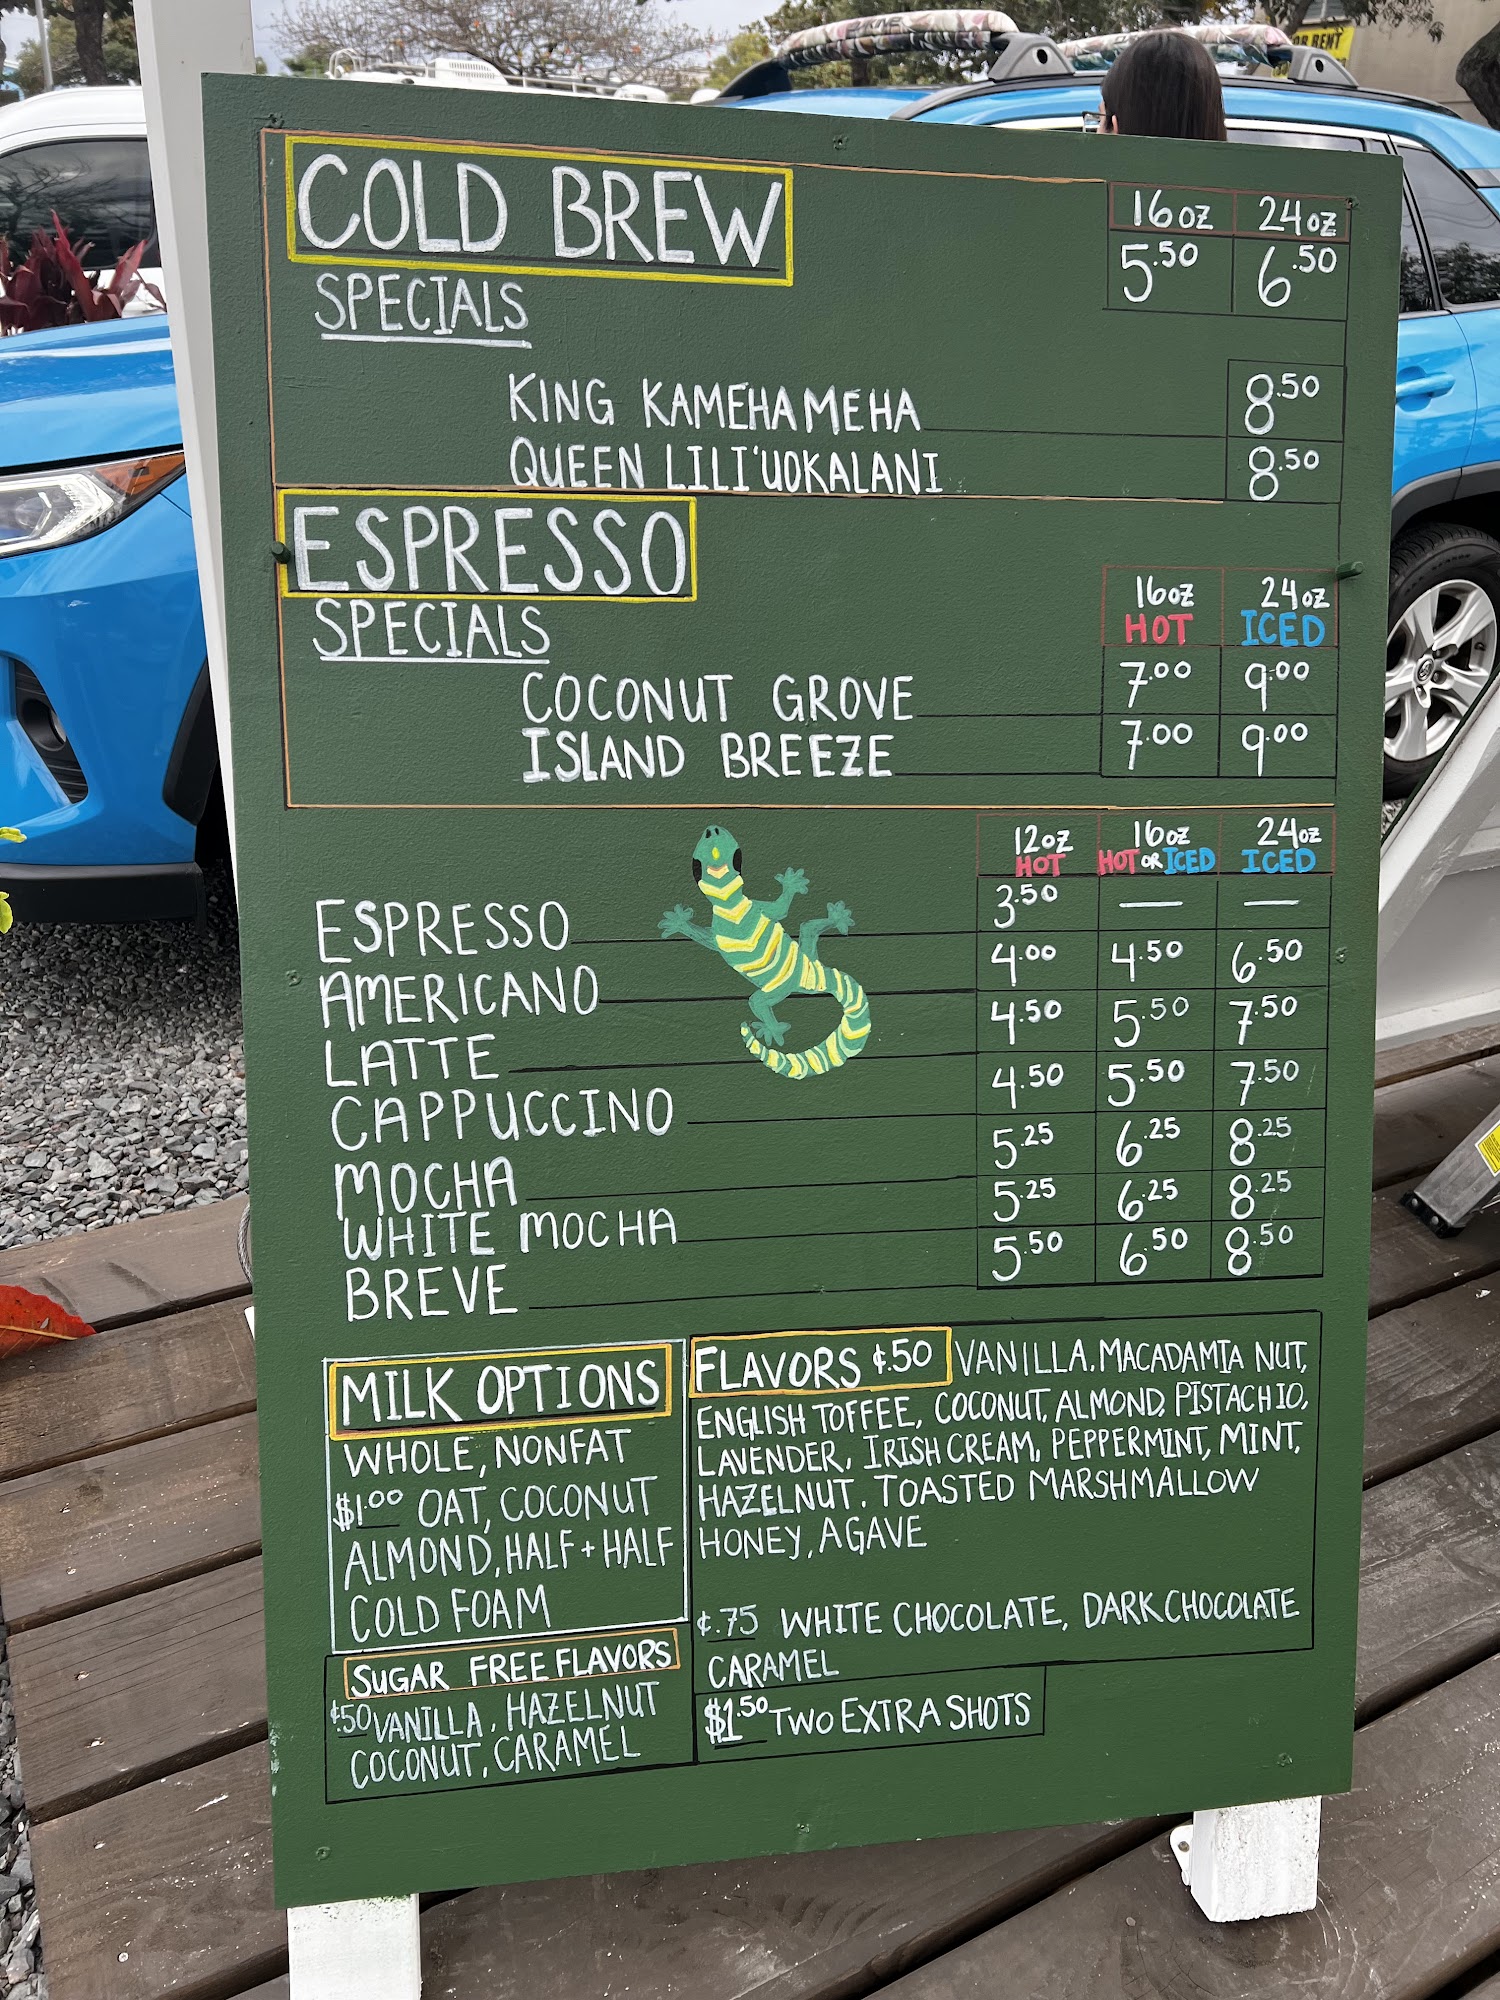 OR RENT
COLD BREW
16oz 24oz
5.50 6.50
SPECIALS
KING KAMEHAMEHA 8.50
QUEEN LILI'UOKALANI 8.50
ESPRESSO
SPECIALS
16oz HOT 24oz ICED
COCONUT GROVE 7.00 9.00
ISLAND BREEZE 7.00 9.00
12oz 16oz 24oz
HOT HOT OR ICED ICED
ESPRESSO 3.50 — —
AMERICANO 4.00 4.50 6.50
LATTE 4.50 5.50 7.50
CAPPUCCINO 4.50 5.50 7.50
MOCHA 5.25 6.25 8.25
WHITE MOCHA 5.25 6.25 8.25
BREVE 5.50 6.50 8.50
MILK OPTIONS
WHOLE, NONFAT
$1.00 OAT, COCONUT
ALMOND, HALF + HALF
COLD FOAM
SUGAR FREE FLAVORS
¢.50 VANILLA, HAZELNUT
COCONUT, CARAMEL
FLAVORS ¢.50 VANILLA, MACADAMIA NUT,
ENGLISH TOFFEE, COCONUT, ALMOND, PISTACHIO,
LAVENDER, IRISH CREAM, PEPPERMINT, MINT,
HAZELNUT, TOASTED MARSHMALLOW
HONEY, AGAVE
¢.75 WHITE CHOCOLATE, DARK CHOCOLATE
CARAMEL
$1.50 TWO EXTRA SHOTS